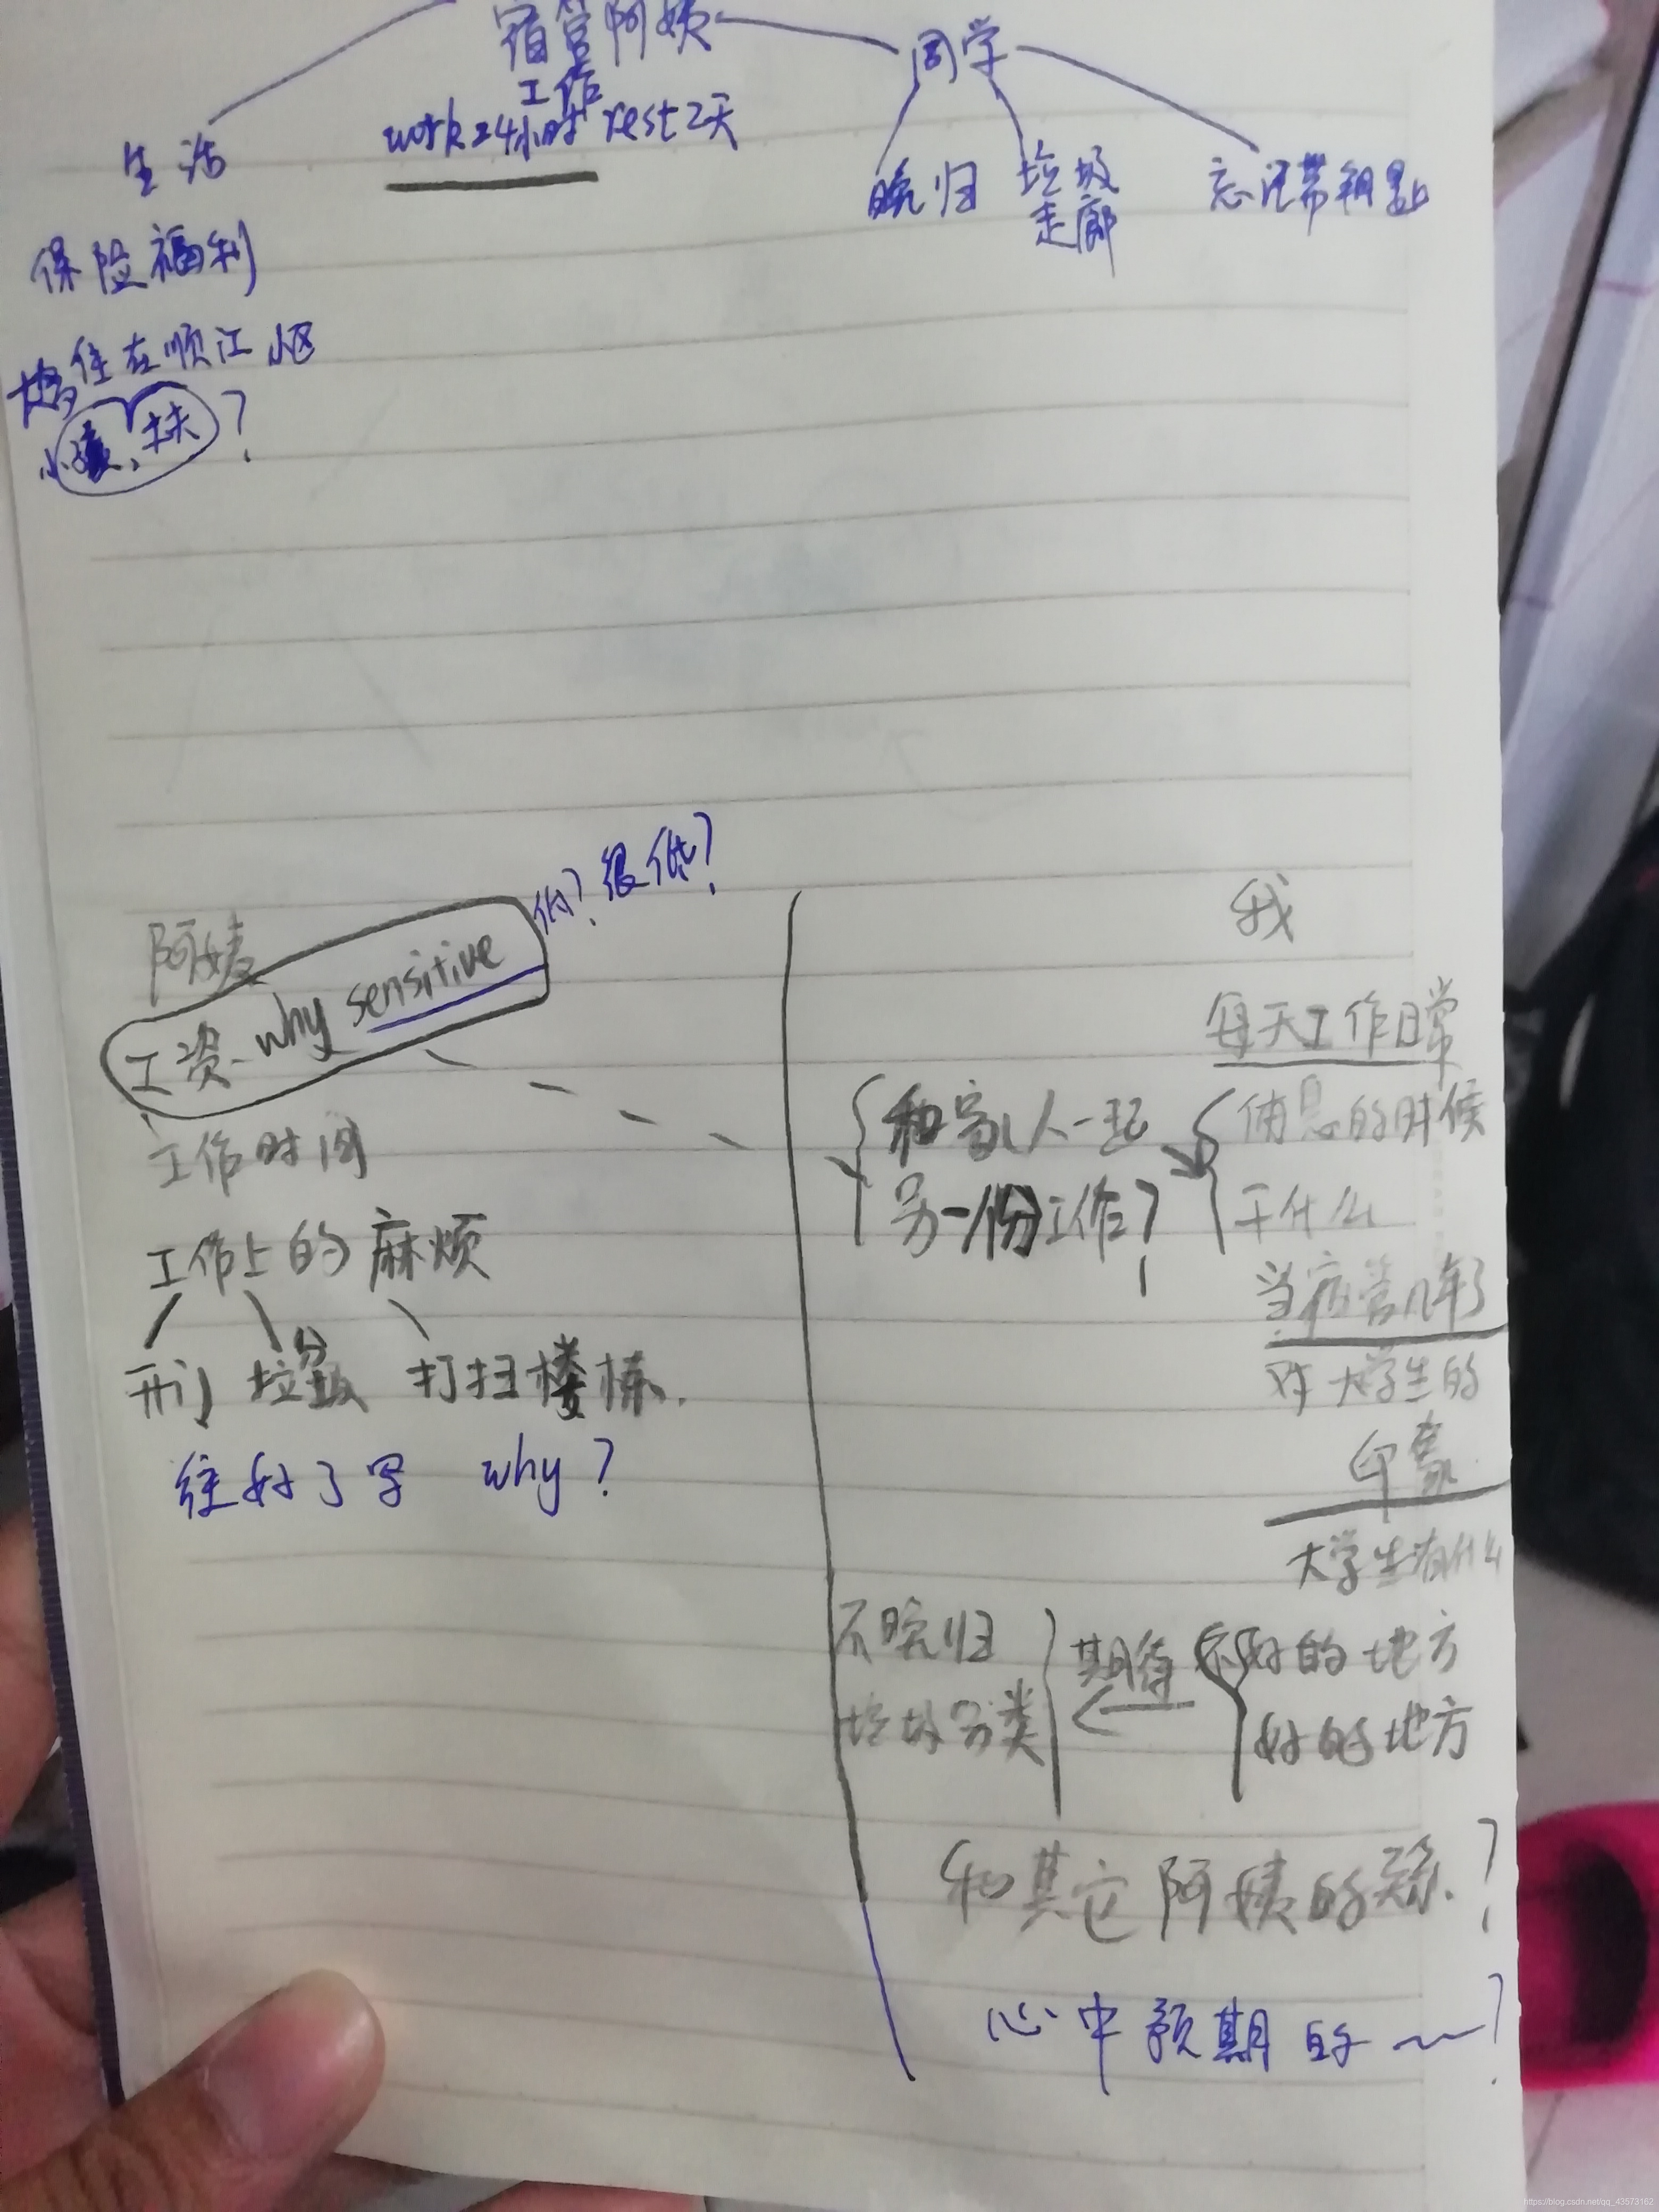 宿管阿姨
工作
work 24小时 rest 2天
同学
生活
晚归
垃圾
走廊
忘记带钥匙
保险福利
住在顺江小区
小孩,丈夫?
低?很低?
阿姨
工资 why sensitive
工作时间
工作上的麻烦
开门 垃圾分 打扫楼栋.
往好了写 why?
我
每天工作日常
和家人一起
另一份工作?
休息的时候
干什么
当宿管几年了
对大学生的
印象
大学生有什么
不好的地方
好的地方
期待
不晚归
垃圾分类
和其它阿姨的关系?
心中预期的~?
https://blog.csdn.net/qq_43573162